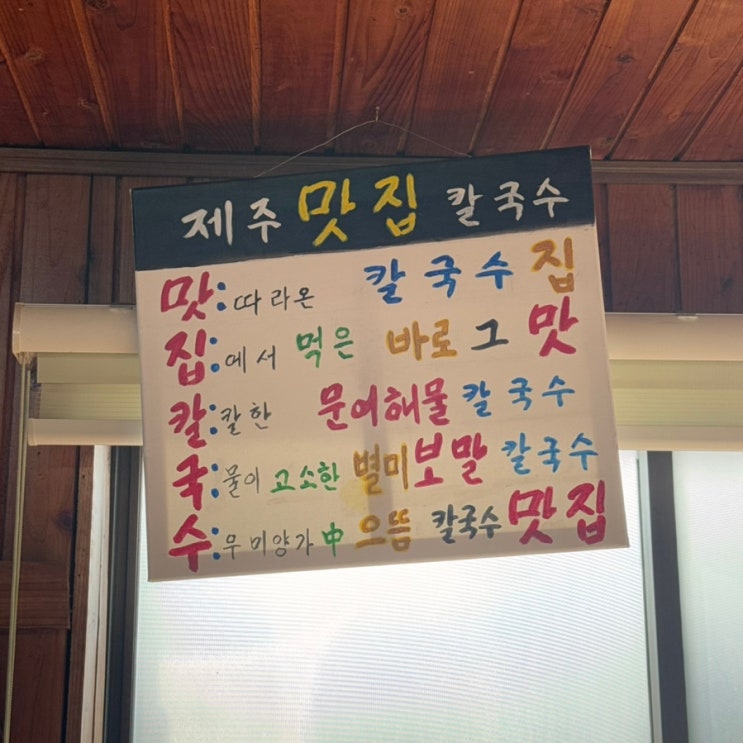 제주 맛집 칼국수
맛: 따라온 칼국수 집
집: 에서 먹은 바로 그 맛
칼: 칼한 문어해물 칼국수
국: 물이 고소한 별미 보말 칼국수
수: 우미양가 中 으뜸 칼국수 맛집